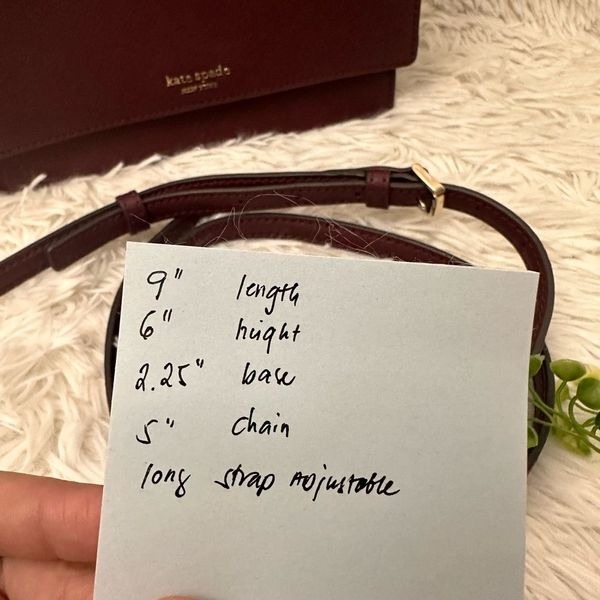 kate spade
NEW YORK
9" length
6" height
2.25" base
5" chain
long strap Adjustable